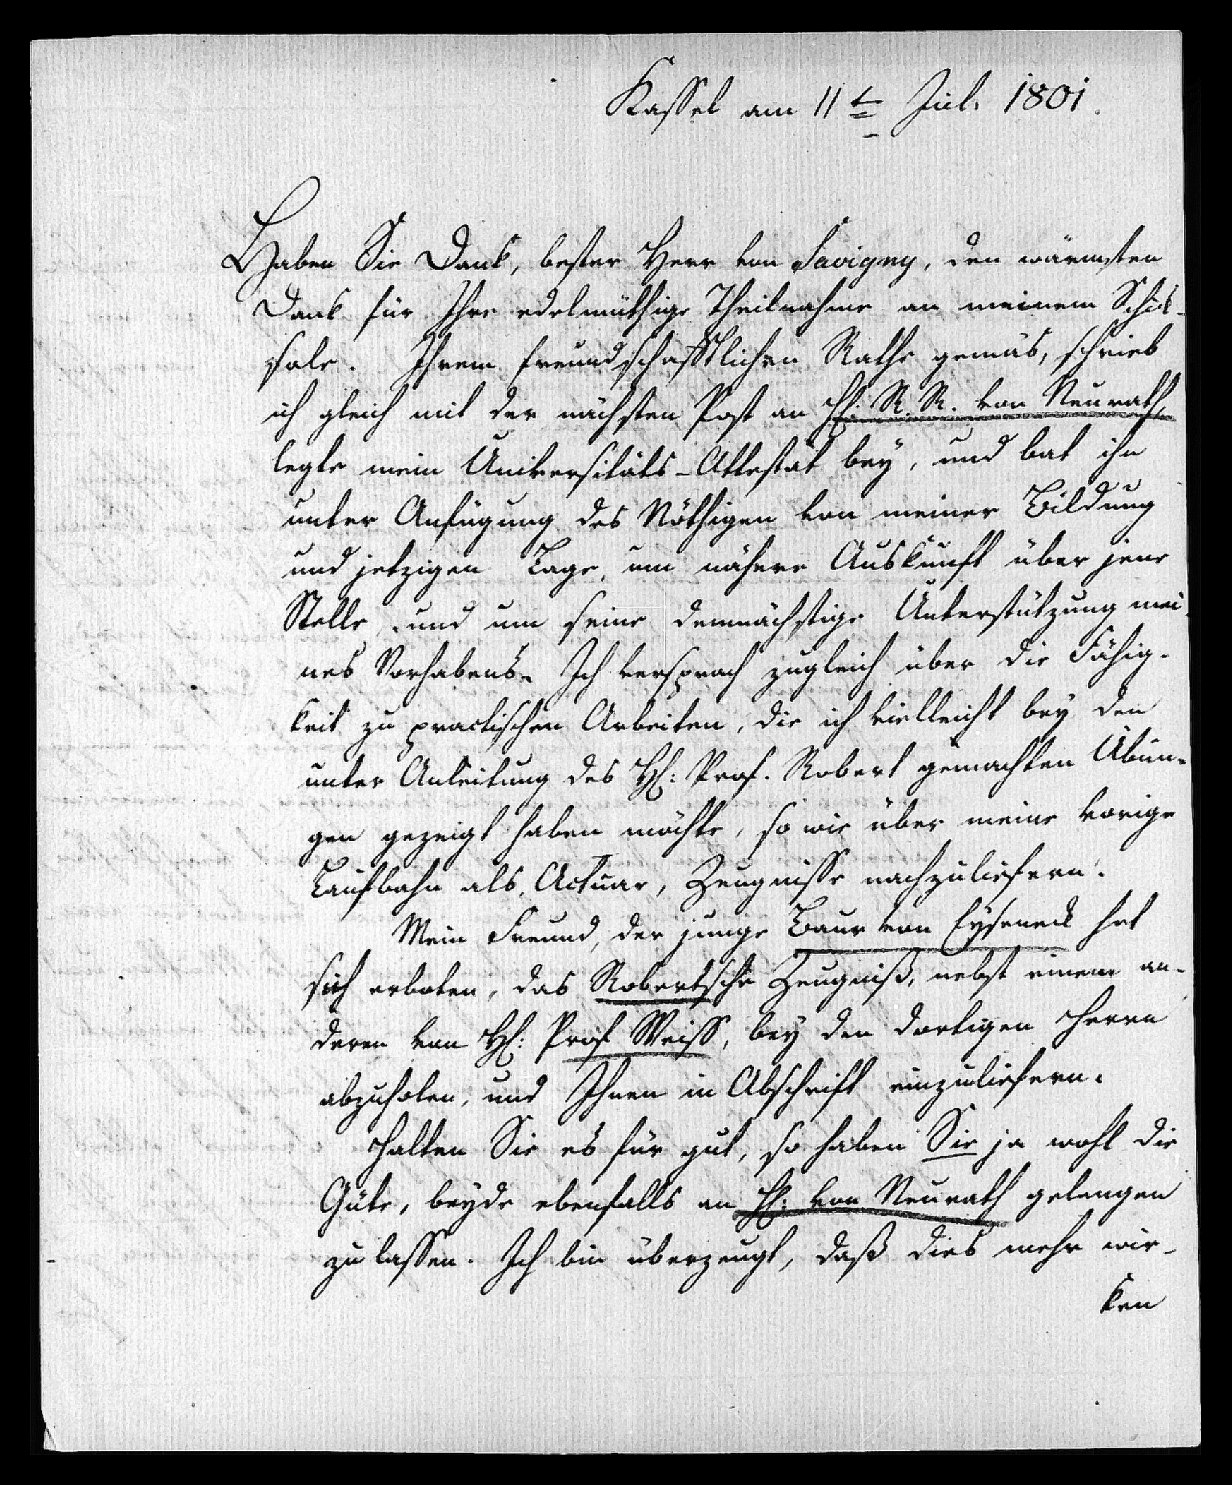 Kassel am 11t Jul. 1801.
Haben Sie Dank, bester Herr von Savigny, den wärmsten
Dank für Ihre edelmüthige Theilnahme an meinem Schick-
sale. Ihrem freundschaftlichen Rathe gemäs, schrieb
ich gleich mit der nächsten Post an H. R. R. von Neurath,
legte mein Universitäts-Attestat bey, und bat ihn
unter Anfügung des Nöthigen von meiner Bildung
und jetzigen Lage, um nähere Auskunft über jene
Stelle, und um seine demnächstige Unterstützung mei
nes Vorhabens. Ich versprach zugleich über die Fähig-
keit zu practischen Arbeiten, die ich vielleicht bey den
unter Anleitung des H: Prof. Robert gemachten Übun-
gen gezeigt haben möchte, so wie über meine vorige
Laufbahn als Actuar, Zeugnisse nachzuliefern.
Mein Freund, der junge Baur von Eyseneck hat
sich erboten, das Robertsche Zeugniß, nebst einem an-
deren von H: Prof Weiss, bey den dortigen Herrn
abzuholen, und Ihnen in Abschrift einzuliefern.
Halten Sie es für gut, so haben Sie ja wohl die
Güte, beyde ebenfalls an H: von Neurath gelangen
zu lassen. Ich bin überzeugt, daß dies mehr wir-
ken